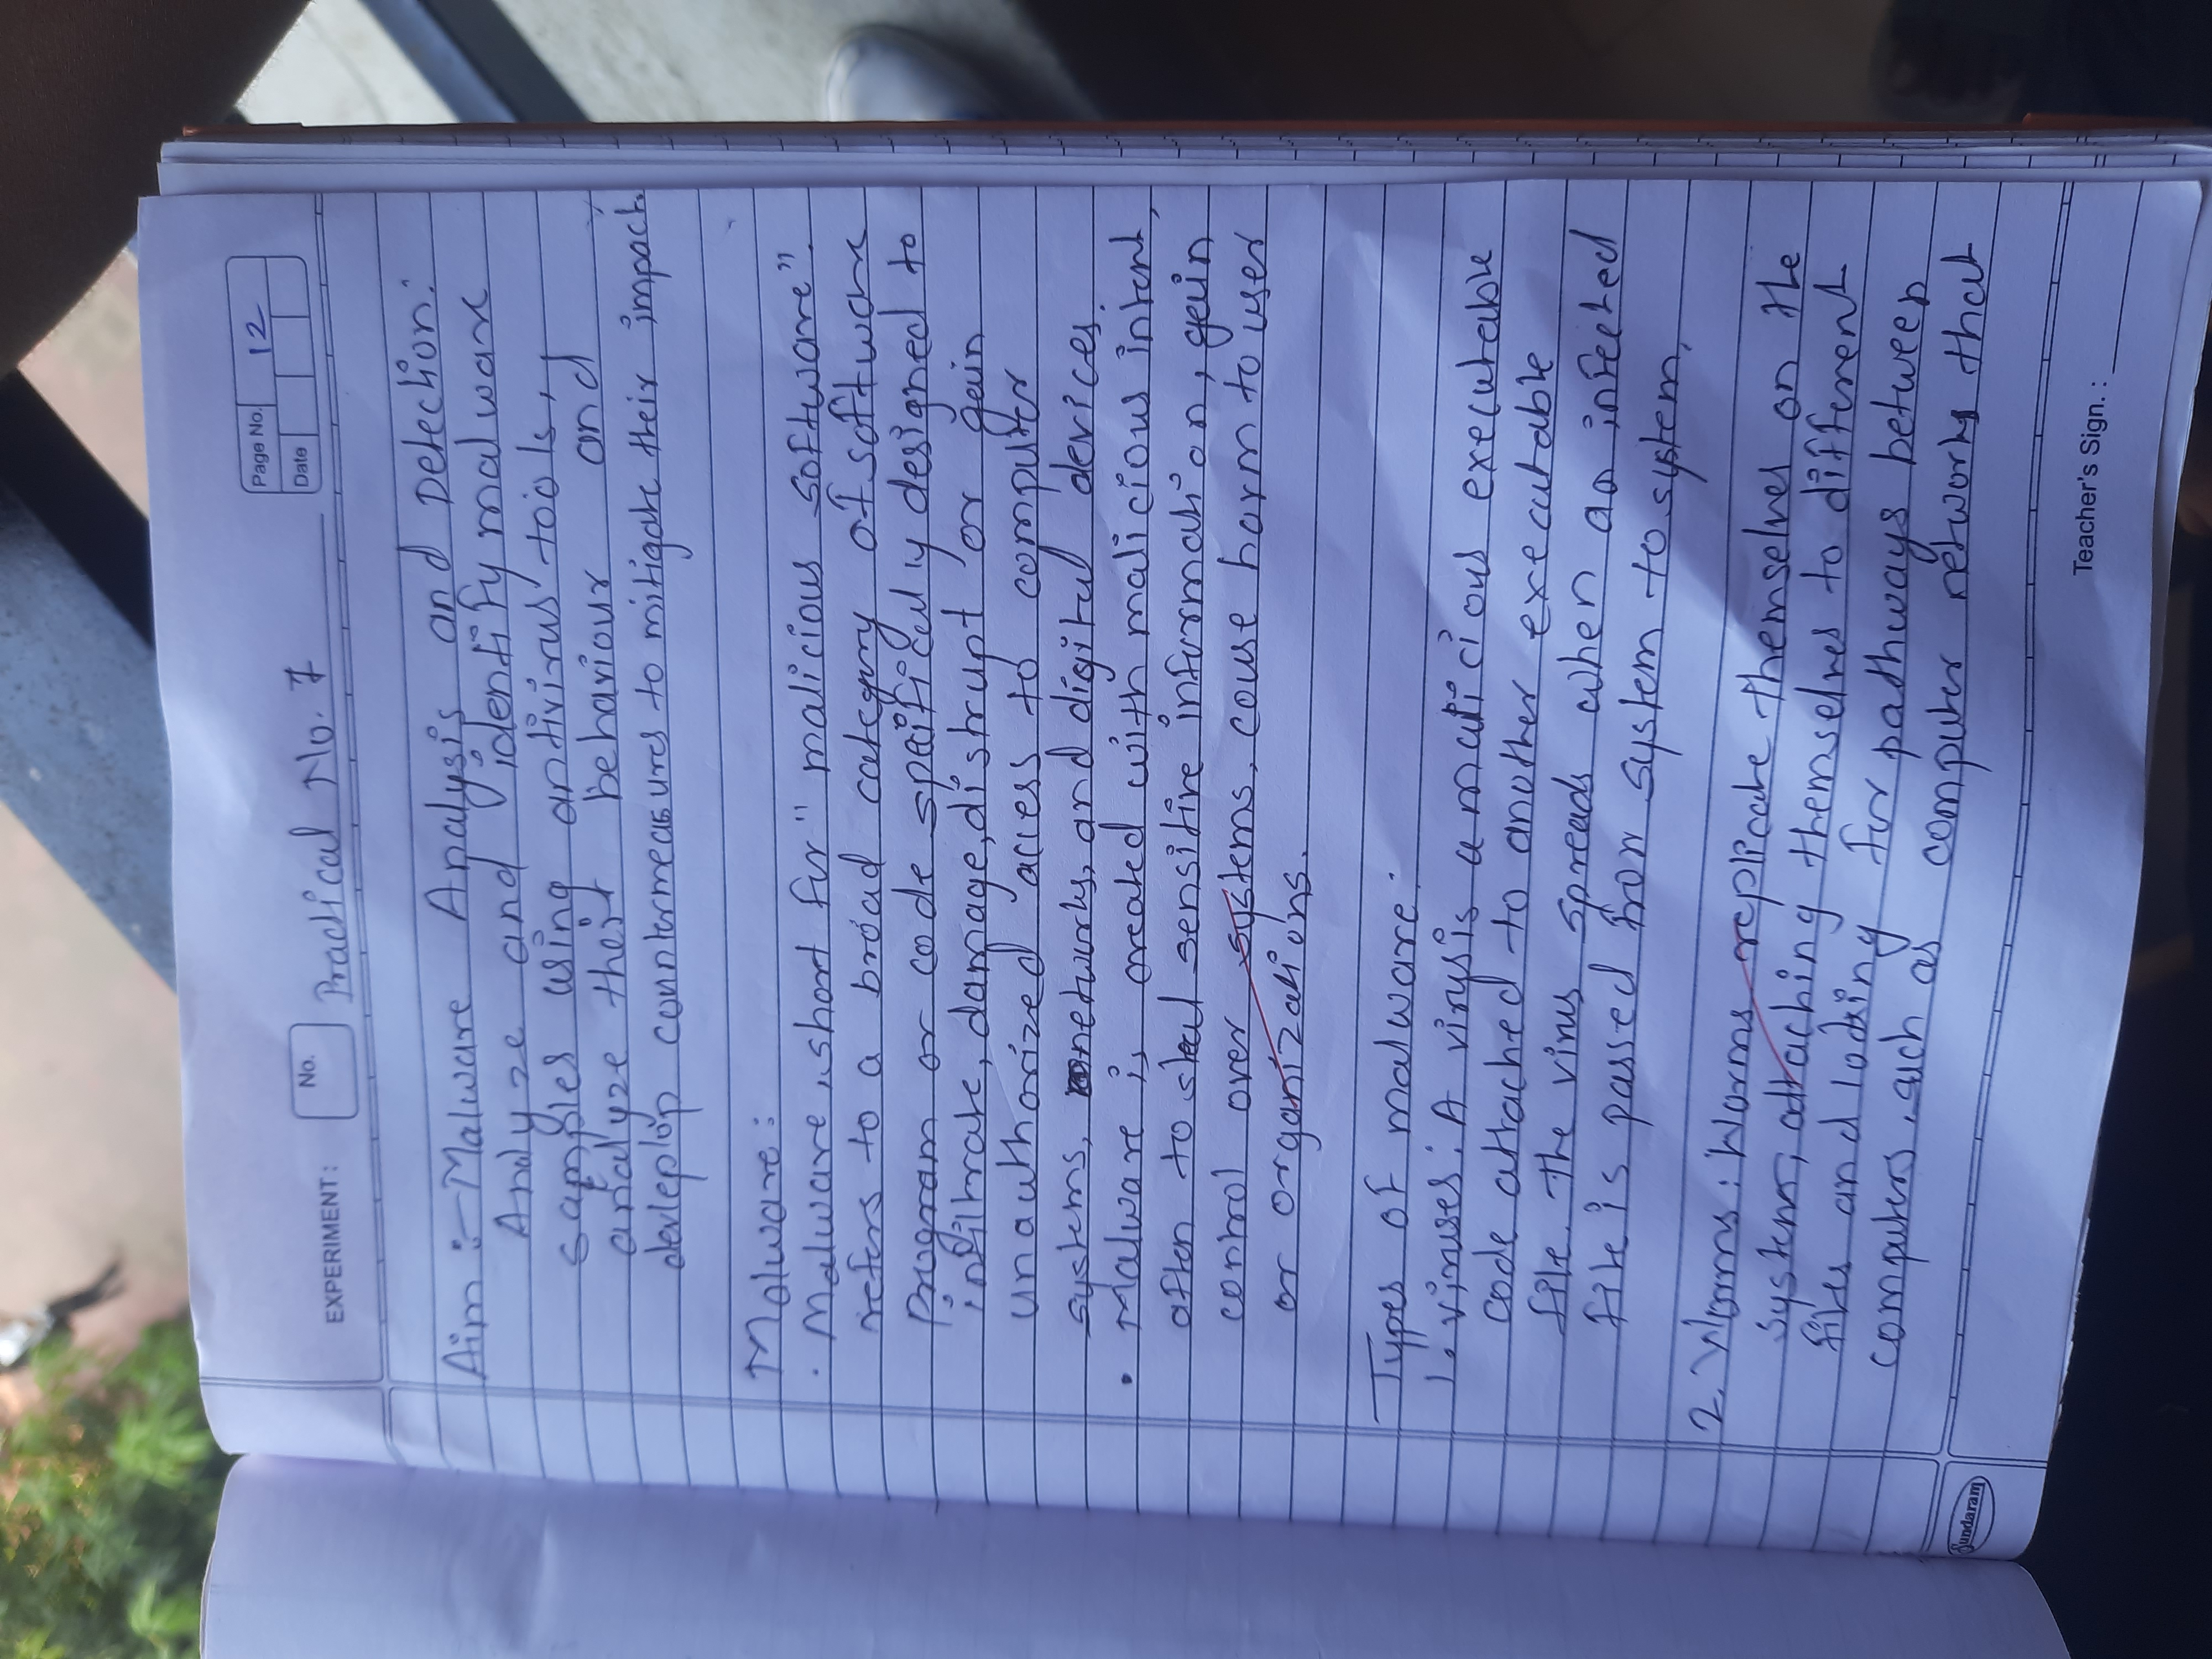 Page No. 12
Date
EXPERIMENT : No. Practical No. 7
Aim :- Malware Analysis and Detection:
Analyze and identify malware
samples using antivirus tools,
analyze their behaviour and
devleplop countermeasures to mitigate their impact.
Malware:
• Malware, short for "malicious software".
refers to a broad category of software
program or code specifically designed to
infiltrate, damage, distrupt or gain
unauthorized access to computer
systems, networks, and digital devices.
• Malware is created with malicious intent,
often to steal sensitive information, gain
control over systems, couse harm to user
or organizations.
Types of malware:
1. viruses: A virus is a malicious executable
code attached to another executable
file. The virus spreads when an infected
file is passed from system to system.
2. Worms: Worms replicate themselves on the
system, attaching themselves to different
files and looking for pathways between
computers, such as computer networks that
Sundaram
Teacher's Sign. :